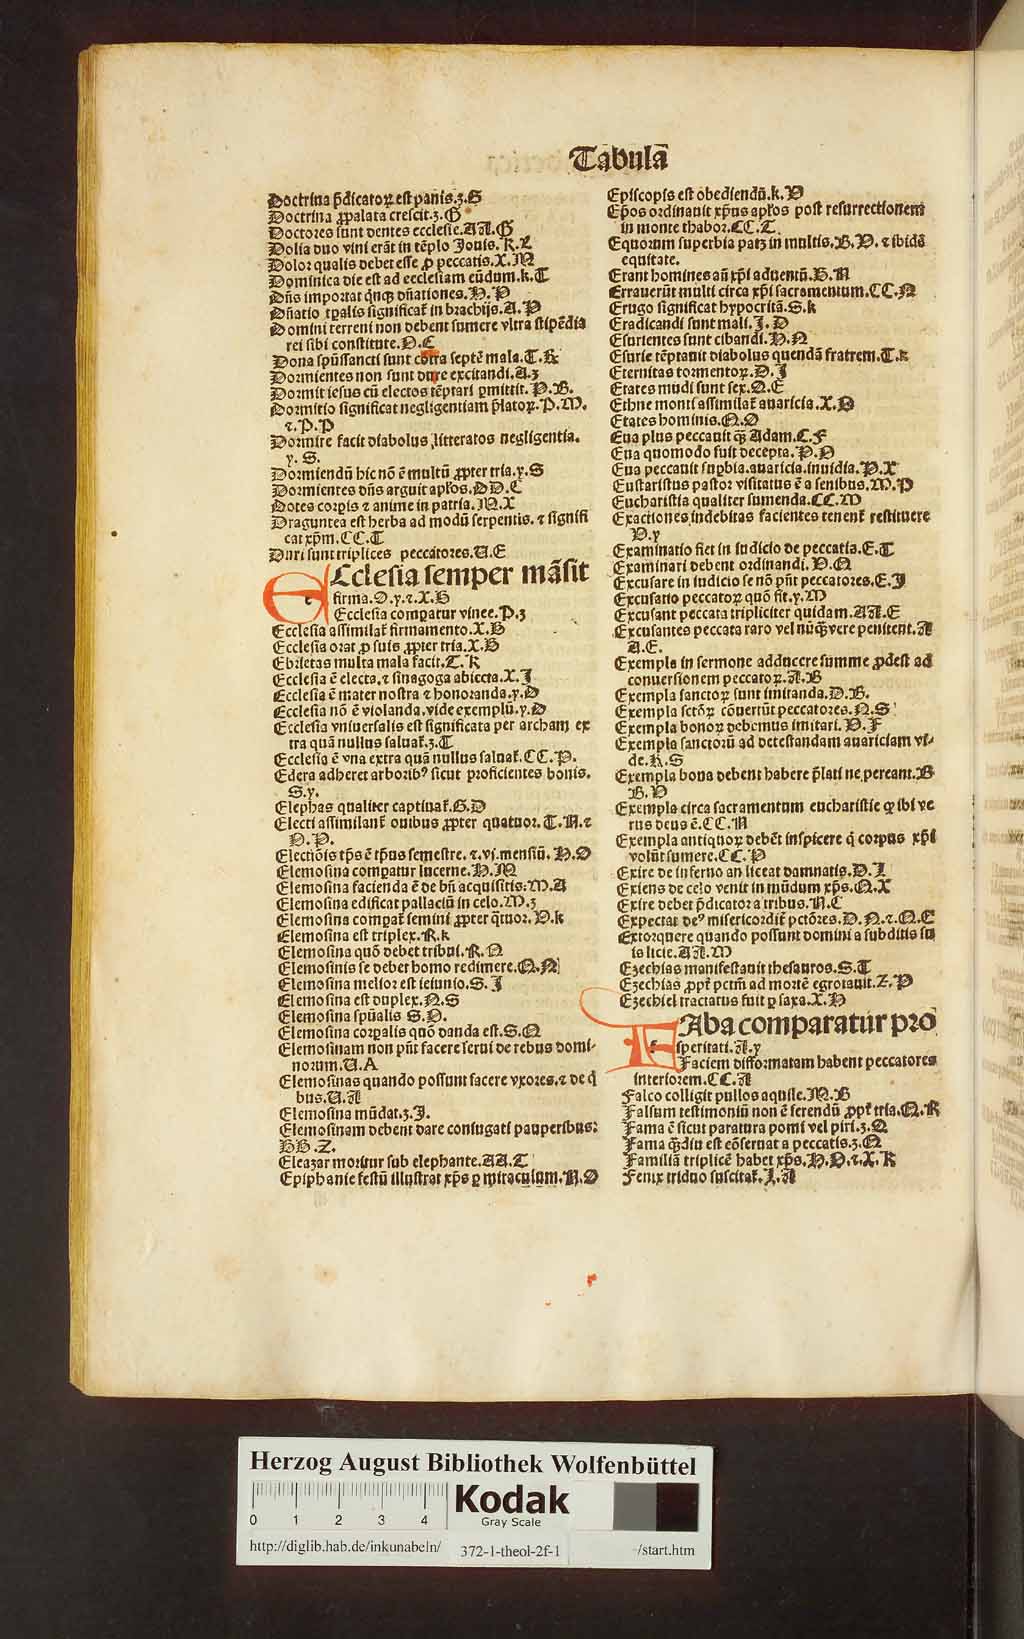 Tabulā
Doctrina p̄dicatoꝝ est panis.ʒ.S
Doctrina ꝓpalata crescit.ʒ.G
Doctores sunt dentes ecclesie.AA.G
Dolia duo vini erāt in tēplo Jouis.R.L
Dolor qualis debet esse ꝓ peccatis.X.M
Dominica die est ad ecclesiam eūdum.k.T
Dn̄s importat q̄nqꝫ dn̄ationes.H.P
Dn̄atio tꝑalis significat̄ in brachijs.A.P
Domini terreni non debent sumere vltra stipēdia
rei sibi constitute.D.C
Dona spūssancti sunt cōtra septē mala.T.R
Dormientes non sunt dure excitandi.A.ʒ
Dormit iesus cū electos tēptari ꝑmittit.P.B.
Dormitio significat negligentiam p̄latoꝝ.P.M.
⁊.P.P
Dormire facit diabolus litteratos negligentia.
y.S.
Dormiendū hic nō ē multū ꝓpter tria.y.S
Dormientes dn̄s arguit apl̄os.DD.C
Dotes coꝛpis ⁊ anime in patria.M.X
Draguntea est herba ad modū serpentis. ⁊ signifi
cat xp̄m.CC.T
Duri sunt triplices peccatores.U.E
Ecclesia semper māsit
firma.O.y.⁊.X.H
Ecclesia comꝑatur vinee.P.ʒ
Ecclesia assimilat̄ firmamento.X.H
Ecclesia orat ꝓ suis ꝓpter tria.X.H
Ebrietas multa mala facit.T.K
Ecclesia ē electa.⁊ sinagoga abiecta.X.J
Ecclesia ē mater nostra ⁊ honoranda.y.D
Ecclesia nō ē violanda.vide exemplū.y.D
Ecclesia vniuersalis est significata per archam ex
tra quā nullus saluat̄.ʒ.T
Ecclesia ē vna extra quā nullus saluat̄.CC.P.
Edera adheret arboribꝰ sicut proficientes bonis.
S.y.
Elephas qualiter captiuat̄.G.D
Electi assimilant̄ ouibus ꝓpter quatuor.T.N.⁊
P.P.
Electiōis tp̄s ē tp̄us semestre. ⁊.vj.mensiū.H.O
Elemosina comꝑatur lucerne.H.M
Elemosina facienda ē de bn̄ acquisitis.M.A
Elemosina edificat pallaciū in celo.M.ʒ
Elemosina comꝑat̄ semini ꝓpter q̄tuor.D.k
Elemosina est triplex.R.k
Elemosina quō debet tribui.R.N
Elemosinis se debet homo redimere.Q.N
Elemosina melior est ieiunio.S.J
Elemosina est duplex.N.S
Elemosina spūalis S.D.
Elemosina coꝛꝑalis quō danda est.S.Q
Elemosinam non pn̄t facere serui de rebus domi-
norum.U.A
Elemosinas quando possunt facere vxores.⁊ de q̄
bus.U.A
Elemosina mūdat.ʒ.J.
Elemosinam debent dare coniugati pauperibus:
HH.Z.
Eleazar moritur sub elephante.AA.T
Epiphanie festū illustrat xp̄s ꝑ miraculum.N.O
Episcopis est obediendū.k.D
Ep̄os ordinauit xp̄us apl̄os post resurrectionem
in monte thabor.CC.T.
Equorum superbia patꝫ in multis.B.D.⁊ ibidē
equitate.
Erant homines an̄ xp̄i aduentū.H.N
Errauerūt multi circa xp̄i sacramentum.CC.N
Erugo significat hypocritā.S.k
Eradicandi sunt mali.J.D
Esurientes sunt cibandi.H.N
Esurie tēptauit diabolus quendā fratrem.T.k
Eternitas tormentoꝝ.D.J
Etates mūdi sunt sex.O.E
Ethne monti assimilat̄ auaricia.X.D
Etates hominis.Q.O
Eua plus peccauit qꝫ̄ Adam.C.F
Eua quomodo fuit decepta.P.D
Eua peccauit suꝑbia.auaricia.inuidia.P.X
Eustartius pastor visitatus ē a senibus.M.P
Eucharistia qualiter sumenda.CC.M
Exactiones indebitas facientes tenent̄ restituere
D.y
Examinatio fiet in iudicio de peccatis.E.T
Examinari debent ordinandi.D.Q
Excusare in iudicio se nō pn̄t peccatores.E.J
Excusatio peccatoꝝ quō fit.y.M
Excusant peccata tripliciter quidam.AA.E
Excusantes peccata raro vel nūqꝫ̄ vere penitent.A
A.E.
Exempla in sermone adducere summe ꝓdest ad
conuersionem peccatoꝝ.A.B
Exempla sanctoꝝ sunt imitanda.D.B.
Exempla sctōꝝ cōuertūt peccatores.N.S
Exempla bonoꝝ debemus imitari.D.F
Exempla sanctorū ad detestandam auariciam vi-
de.K.S
Exempla bona debent habere p̄lati ne pereant.B
B.D
Exempla circa sacramentum eucharistie ꝙ ibi ve
rus deus ē.CC.N
Exempla antiquoꝝ debēt inspicere q̄ corpus xp̄i
volūt sumere.CC.P
Exire de inferno an liceat damnatis.D.J
Exiens de celo venit in mūdum xp̄s.Q.X
Exire debet p̄dicator a tribus.N.C
Expectat deꝰ misericordit̄ pctōres.D.N.⁊.Q.E
Extorquere quando possunt domini a subditis su
is licite.AA.M
Ezechias manifestauit thesauros.S.T
Ezechias ꝓpt̄ pctm̄ ad mortē egrotauit.Z.P
Ezechiel tractatus fuit ꝑ saxa.X.H
FAba comparatur pro
speritati.A.y
Faciem difformatam habent peccatores
interiorem.CC.A
Falco colligit pullos aquile.M.B
Falsum testimoniū non ē ferendū ꝓpt̄ tria.Q.R
Fama ē sicut paratura pomi vel piri.ʒ.Q
Fama qꝫ̄diu est cōseruat a peccatis.ʒ.Q
Familiā triplicē habet xp̄s.H.D.⁊.X.K
Fenix triduo suscitat̄.J.A
Herzog August Bibliothek Wolfenbüttel
0 1 2 3 4
Kodak
Gray Scale
http://diglib.hab.de/inkunabeln/ 372-1-theol-2f-1 -/start.htm